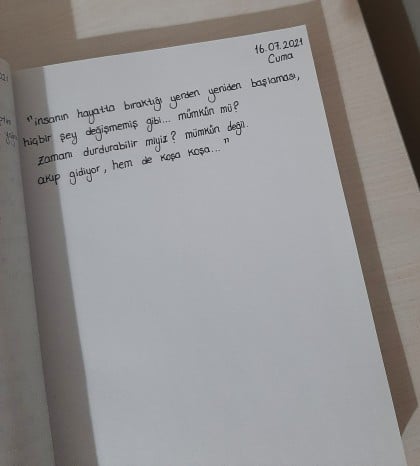 16.07.2021
Cuma
"insanın hayatta bıraktığı yerden yeniden başlaması,
hiçbir şey değişmemiş gibi... mümkün mü?
zamanı durdurabilir miyiz? mümkün değil.
akıp gidiyor, hem de koşa koşa..."